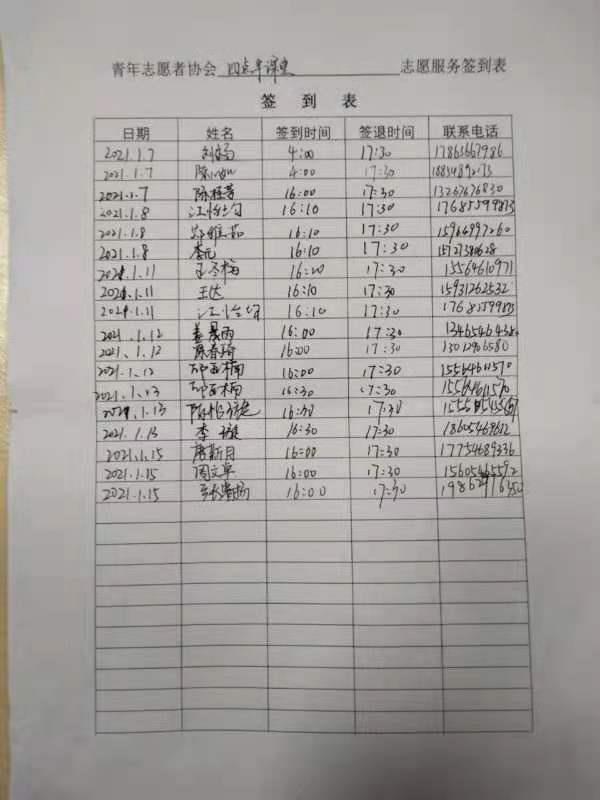 青年志愿者协会 四点半课堂 志愿服务签到表
签 到 表
日期 姓名 签到时间 签退时间 联系电话
2021.1.7 4:00 17:30 17863667986
2021.1.7 4:00 17:30
2021.1.7 陈桂芳 16:00 17:30 13267676830
2021.1.8 江怡均 16:10 17:30 17685599813
2021.1.8 郑雅茹 16:10 17:30 15966997260
2021.1.8 李元 16:10 17:30
2021.1.11 王冬梅 16:20 17:30 15564610971
2021.1.11 王达 16:10 17:30 15931262532
2021.1.11 江怡均 16:10 17:30
2021.1.12 姜晨雨 16:00 17:30
2021.1.12 陈春琦 16:00 17:30 13012906580
2021.1.12 16:00 17:30 15564611570
2021.1.13 16:30 17:30 15564611570
2021.1.13 16:30 17:30
2021.1.13 李 璇 16:30 17:30 18605469612
2021.1.15 唐斯月 16:00 17:30 17754689336
2021.1.15 周文卓 16:00 17:30 15605465572
2021.1.15 16:00 17:30